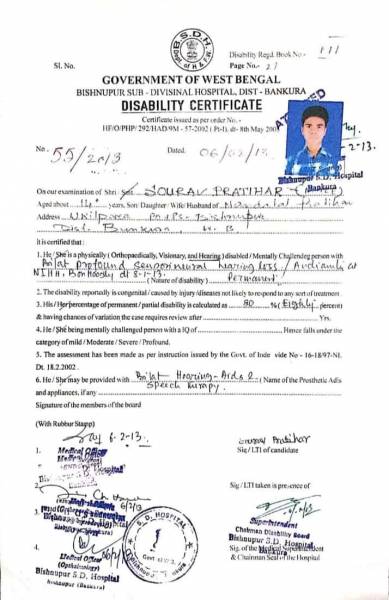 Disability Regd. Book No - 111
Sl. No. Page No. - 21
GOVERNMENT OF WEST BENGAL
BISHNUPUR SUB - DIVISINAL HOSPITAL, DIST - BANKURA
DISABILITY CERTIFICATE
Certificate issued as per order No. -
HF/O/PHP/ 292/HAD/9M - 57-2002 ( Pt-I), dt- 8th May 200
ATTESTED
No. 55/2013 Dated. 06/02/13.
2-13.
Bishnupur S.D. Hospital
(Bankura)
On our examination of Shri/ Smt. SOURAV PRATIHAR
Aged about 14+ years, Son/ Daughter/ Wife/ Husband of Nandalal Pratihar
Address P.O+P.S- Bishnupur
Dist. Bankura, W.B
It is certified that :
1. He / She is a physically ( Orthopaedically, Visionary, and Hearing ) disabled / Mentally Challendeg person with
Bilat profound sensorineural hearing loss / Audiometry at
NIHH, Bonhooghly dt 8-1-13. ( Nature of disability ) Permanent
2. The disability reportedly is congenital / caused by injury /diseases not likely to respond to any sort of treatment
3. His / Her percentage of permanent / partial disability is calculated as 80 % ( Eighty percent)
& having chances of variation the case requires review after Yrs.
4. He / She being mentally challenged person with a IQ of Hence falls under the
category of mild / Moderate / Severe / Profound.
5. The assessment has been made as per instruction issued by the Govt. of Inde vide No - 16-18/97-NI.
Dt. 18.2.2002 .
6. He / She may be provided with Bilat Hearing - Aids & ( Name of the Prosthetic Adis
and appliances, if any Speech therapy.
Signature of the members of the board
(With Rubbur Stamp)
6-2-13.
Sourav Pratihar
1. Medical Officer Sig / LTI of candidate
Bishnupur S.D. Hospital
2. Sig / LTI taken is presence of
6/2/13
3.
Superintendent
Chairman Disability Board
Bishnupur S.D. Hospital
Bankura
4. Sig. of the Medical Superintendent
& Chairman Seal of the Hospital
Medical Officer
(Opthalmology)
Bishnupur S.D. Hospital
Bishnupur (Bankura)
S. D. HOSPITAL